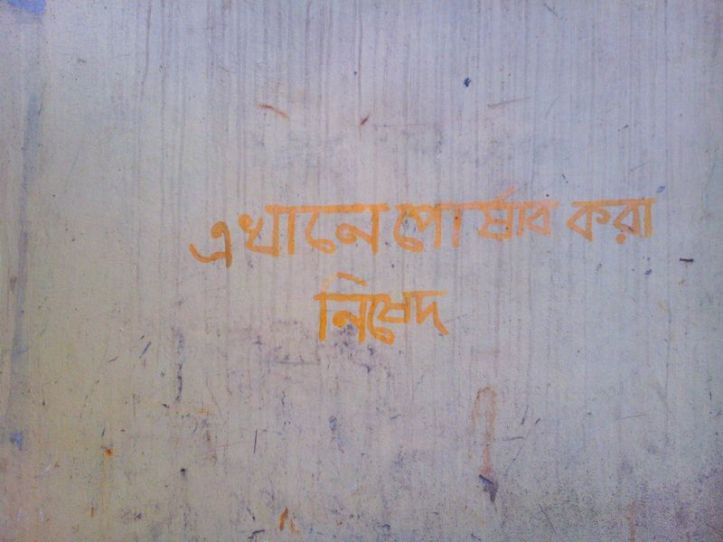 এখানে পোর্ষাব করা
নিষেদ